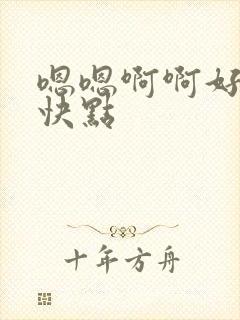 嗯嗯啊啊好
快點
十年方舟